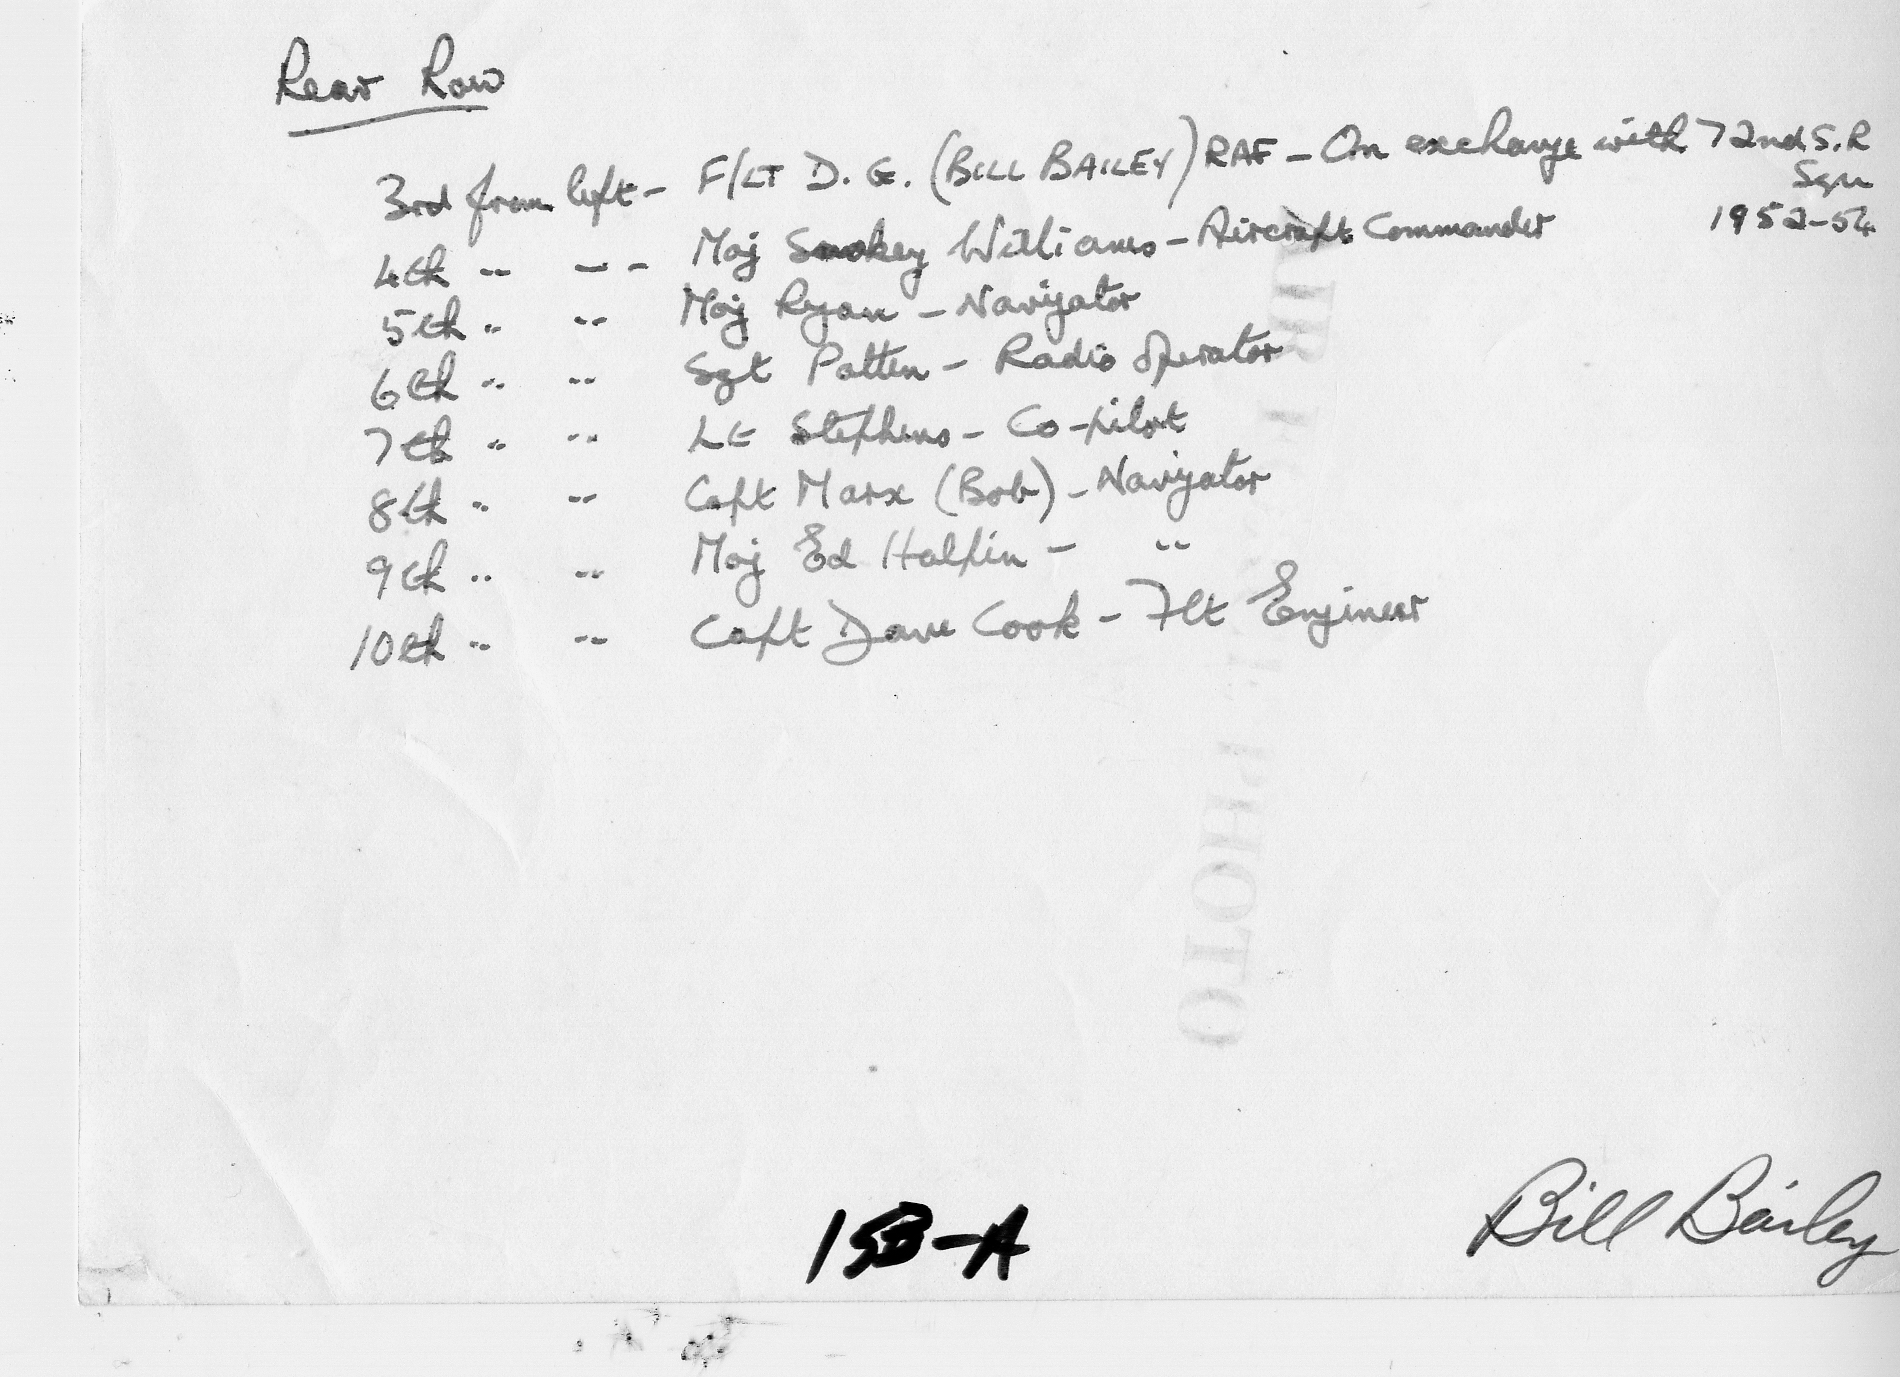 Rear Row
3rd from left - F/LT D. G. (BILL BAILEY) RAF - On exchange with 72nd S.R
Sqn
1952-54
4th " " - Maj Smokey Williams - Aircraft Commander
5th " " Maj Ryan - Navigator
6th " " Sgt Patten - Radio Operator
7th " " Lt Stephens - Co-pilot
8th " " Capt Marx (Bob) - Navigator
9th " " Maj Ed Halpin - "
10th " " Capt Dave Cook - Flt Engineer
PHOTO
Bill Bailey